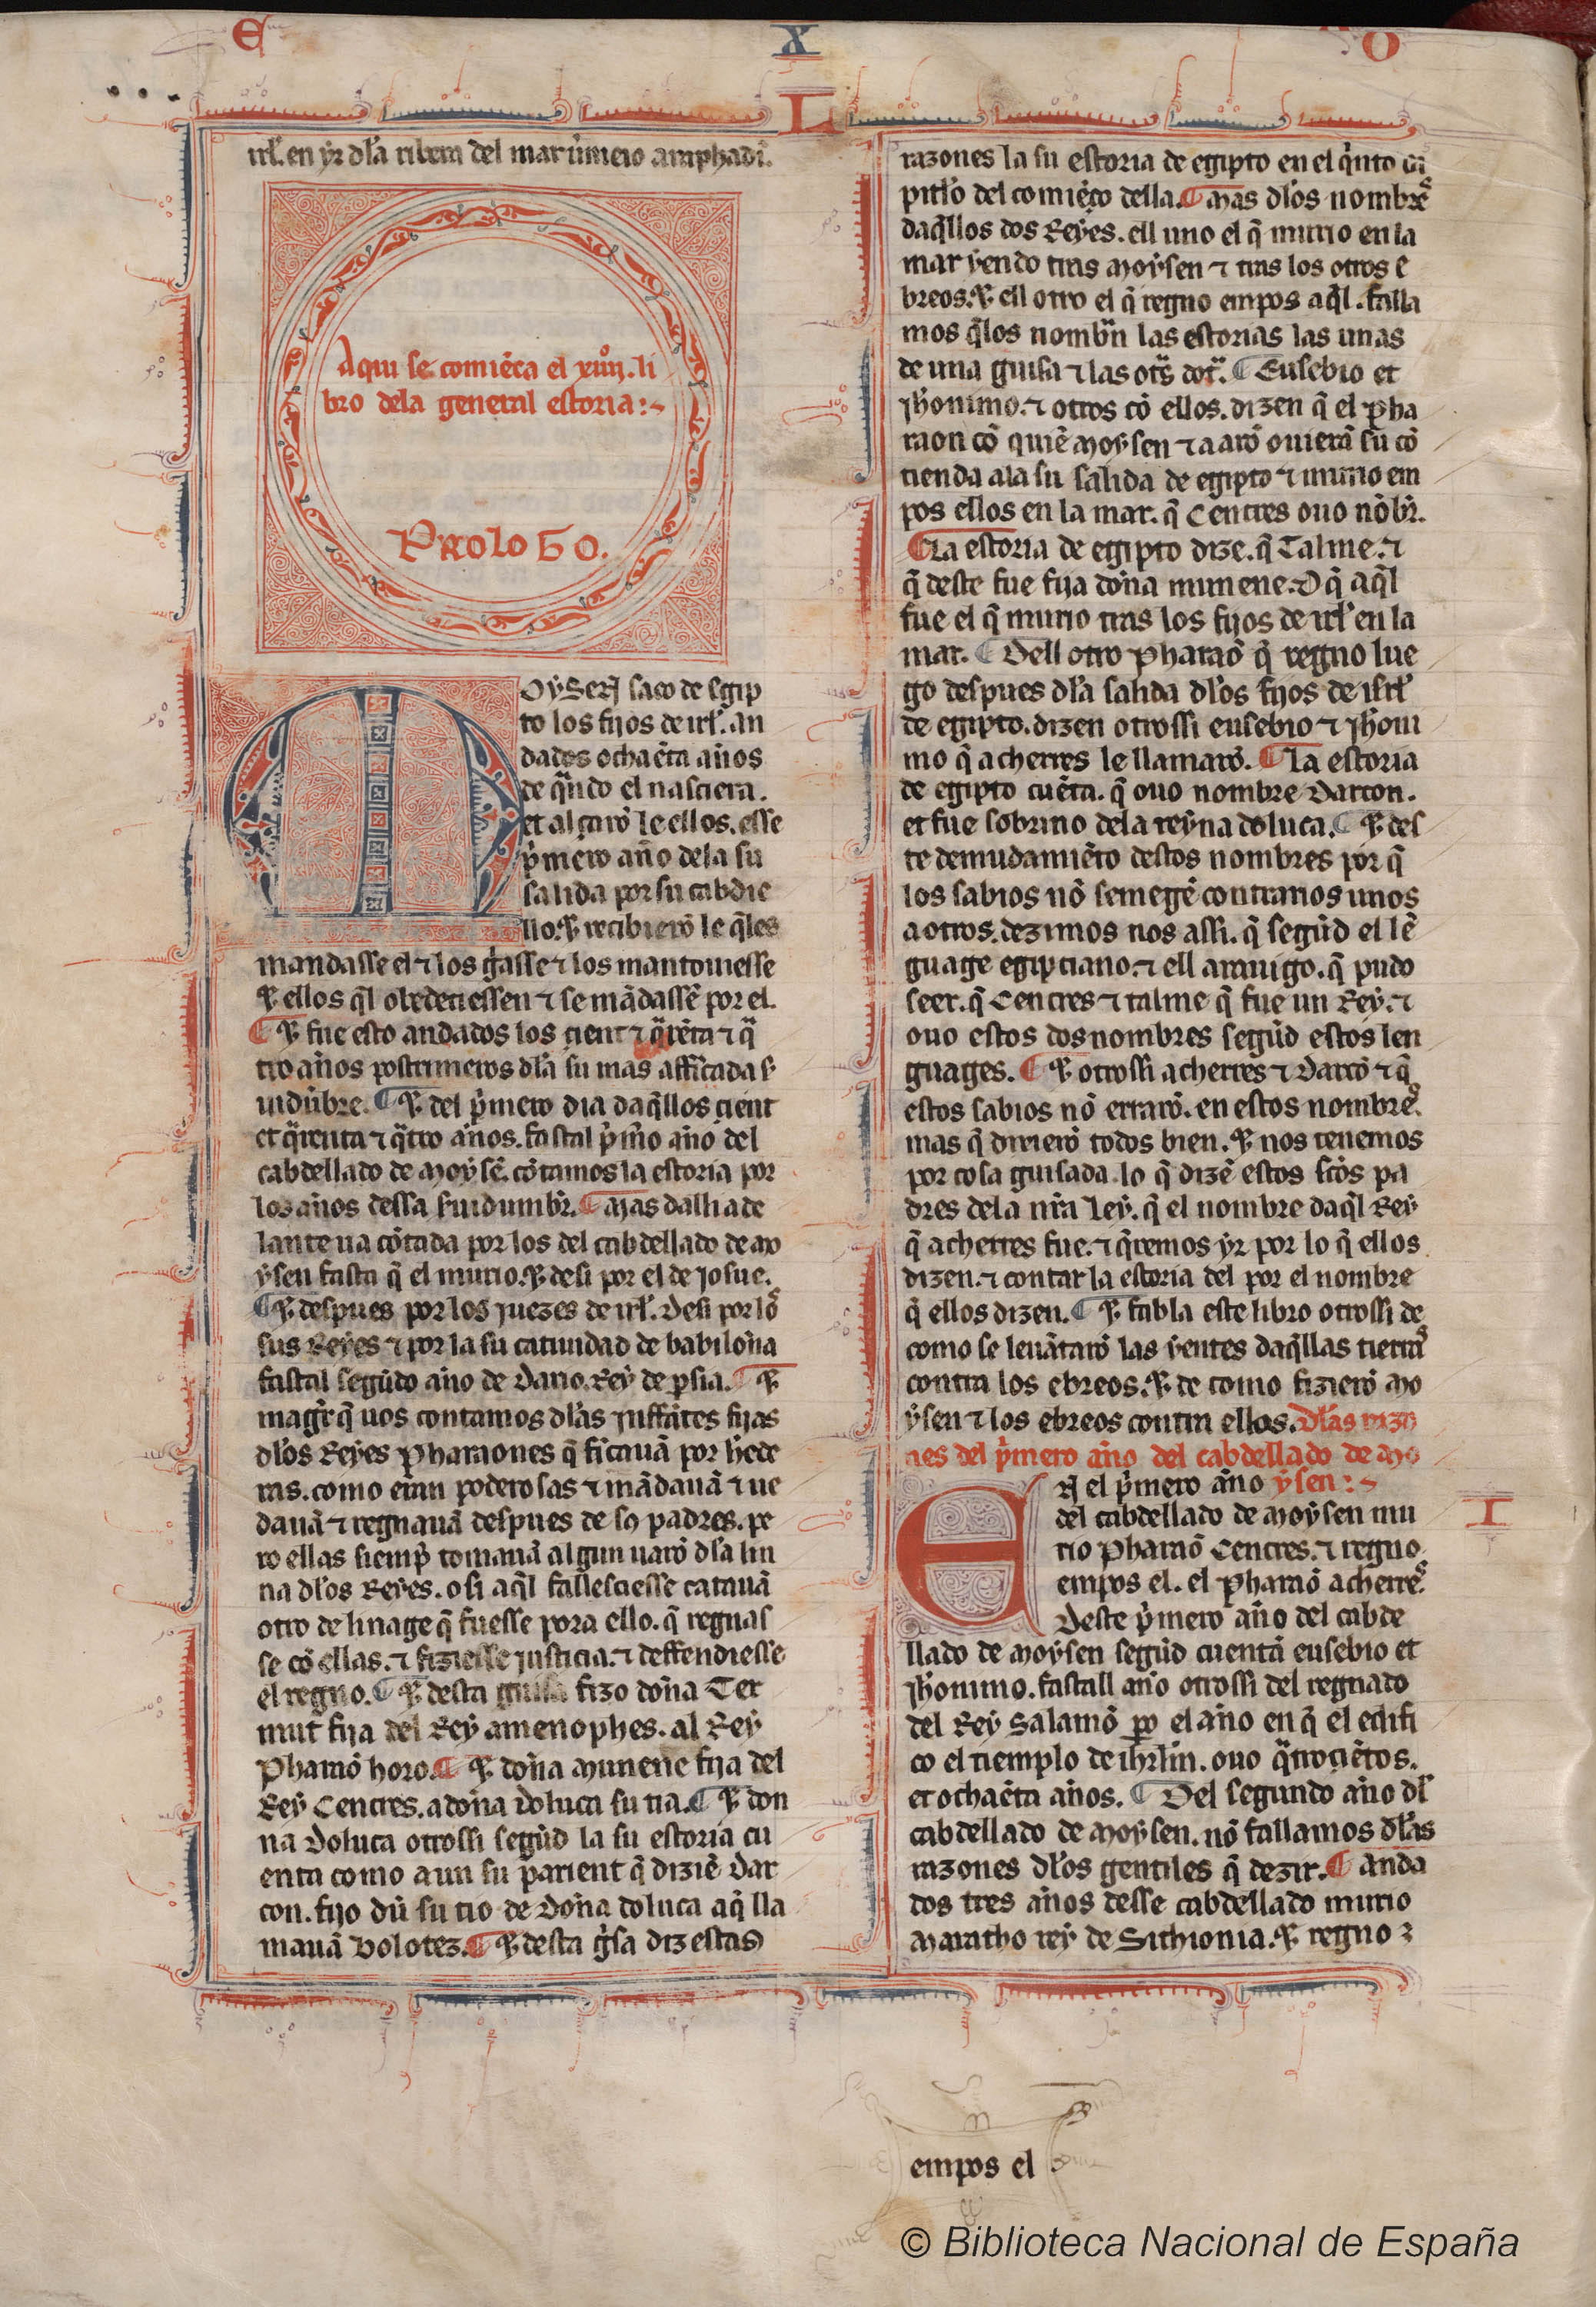 E X O
L
irl̃. en yr dl̃a ribera del mar ũmeio a mphadĩ.
Aqui se comiẽça el xiiij. li
bro dela general estoria:~
PROLOGO.
OYSEN saco de Egip
to los fijos de irl̃. an
dados ochaẽta años
de q̃ndo el nasciera.
et alçarõ le ellos. esse
p̃mero año dela su
salida por su cabdie
llo. ⁊ recibierõ le q̃les
mandasse el ⁊ los g̃asse ⁊ los mantouiesse
⁊ ellos q̃l obedeciessen ⁊ se mãdassẽ por el.
¶ ⁊ fue esto andados los çient ⁊ q̃rẽta ⁊ q̃
tro años postrimeros dl̃a su mas afficada s̃
uidũbre. ¶ ⁊ del p̃mero dia daq̃llos çient
et q̃renta ⁊ q̃tro años. fastal p̃m̃o año del
cabdellado de Moysẽ. cõtamos la estoria por
los años dessa s̃uidumbr̃. ¶ Mas dalli ade
lante ua cõtada por los del cabdellado de Mo
ysen fasta q̃ el murio. ⁊ desi por el de Josue.
¶ ⁊ despues por los juezes de irl̃. Desi por los
sus Reyes ⁊ por la su catiuidad de babiloña
fastal segũdo año de Dario. Rey de p̃sia. ¶ ⁊
mager q̃ uos contamos dl̃as Jnffãtes fijas
dl̃os Reyes Pharaones q̃ ficauã por h̃ede
ras. como eran poderosas ⁊ mãdauã ⁊ ue
dauã ⁊ regnauã despues de sos padres. pe
ro ellas siemp̃ tomauã algun uarõ dl̃a lin
na dl̃os Reyes. o si aq̃l fallesciesse catauã
otro de linage q̃ fuesse pora ello. q̃ regnas
se cõ ellas. ⁊ fiziesse justicia. ⁊ deffendiesse
el regno. ¶ ⁊ desta guisa fizo doña Ter
mut fija del Rey amenophes. al Rey
Pharaõ horo. ¶ ⁊ doña Munene fija del
Rey Cencres. a doña Doluca su tia. ¶ ⁊ don
na Doluca otrossi segũd la su estoria cu
enta como a un su parient q̃ diziẽ Dar
con. fijo dũ su tio de Doña doluca aq̃ lla
mauã Bolotez. ¶ ⁊ desta g̃sa diz estas
razones la su estoria de egipto en el q̃nto ca
pitl̃o del comiẽço della. ¶ Mas dl̃os nombres
daq̃llos dos Reyes. ell uno el q̃ murio en la
mar yendo tras Moysen ⁊ tras los otros e
breos. ⁊ ell otro el q̃ regno empos aq̃l. falla
mos q̃los nombrã las estorias las unas
de una guisa ⁊ las otr̃s dotr̃. ¶ Eusebio et
Jh̃onimo. ⁊ otros cõ ellos. dizen q̃ el pha
raon cõ quiẽ Moysen ⁊ aarõ ouierã su cõ
tienda ala su salida de egipto ⁊ murio em
pos ellos en la mar. q̃ Cencres ouo nõbr̃.
¶ La estoria de egipto dize. q̃ Talme. ⁊
q̃ deste fue fija doña munene. ⁊ q̃ aq̃l
fue el q̃ murio tras los fijos de irl̃ en la
mar. ¶ Dell otro Pharaõ q̃ regno lue
go despues dl̃a salida dl̃os fijos de isrl̃
de egipto. dizen otrossi eusebio ⁊ Jh̃oni
mo q̃ acherres le llamarõ. ¶ La estoria
de egipto cuẽta. q̃ ouo nombre Darcon.
et fue sobrino dela reyna doluca. ¶ ⁊ des
te demudamiẽto destos nombres por q̃
los sabios nõ semegẽ contrarios unos
a otros. dezimos nos assi. q̃ segũd el lẽ
guage egipciano. ⁊ ell arauigo. q̃ pudo
seer. q̃ Cencres ⁊ talme q̃ fue un Rey. ⁊
ouo estos dos nombres segũd estos len
guages. ¶ ⁊ otrossi acherres ⁊ Darcõ ⁊ q̃
estos sabios nõ errarõ. en estos nombres.
mas q̃ dixierõ todos bien. ⁊ nos tenemos
por cosa guisada. lo q̃ dizẽ estos sc̃os pa
dres dela nr̃a Ley. q̃ el nombre daq̃l Rey
q̃ acherres fue. ⁊ q̃remos yr por lo q̃ ellos
dizen. ⁊ contar la estoria del por el nombre
q̃ ellos dizen. ¶ ⁊ fabla este libro otrossi de
como se leuãtarõ las yentes daq̃llas tierras
contra los ebreos. ⁊ de como fizierõ Mo
ysen ⁊ los ebreos contra ellos. Dl̃as razo
nes del p̃mero año del cabdellado de Mo
ysen:~
I
EN el p̃mero año
del cabdellado de Moysen mu
rio Pharaõ Cencres. ⁊ regno
empos el. el Pharaõ acherres.
Deste p̃mero año del cabde
llado de Moysen segũd cuentã eusebio et
Jh̃onimo. fastall año otrossi del regnado
del Rey Salamõ p̃o el año en q̃ el edifi
co el tiemplo de ih̃rl̃m. ouo q̃troçiẽtos.
et ochaẽta años. ¶ Del segundo año dl̃
cabdellado de Moysen. nõ fallamos dl̃as
razones dl̃os gentiles q̃ dezir. ¶ Anda
dos tres años desse cabdellado murio
Maratho rey de Sithionia. ⁊ regno
empos el
© Biblioteca Nacional de España